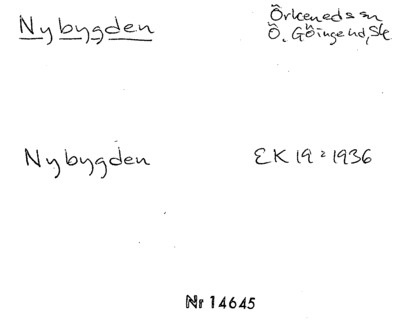 Nybygden
Örkeneds sn
Ö. Göinge hd, Sk
Nybygden
EK 19 : 1936
Nr 14645